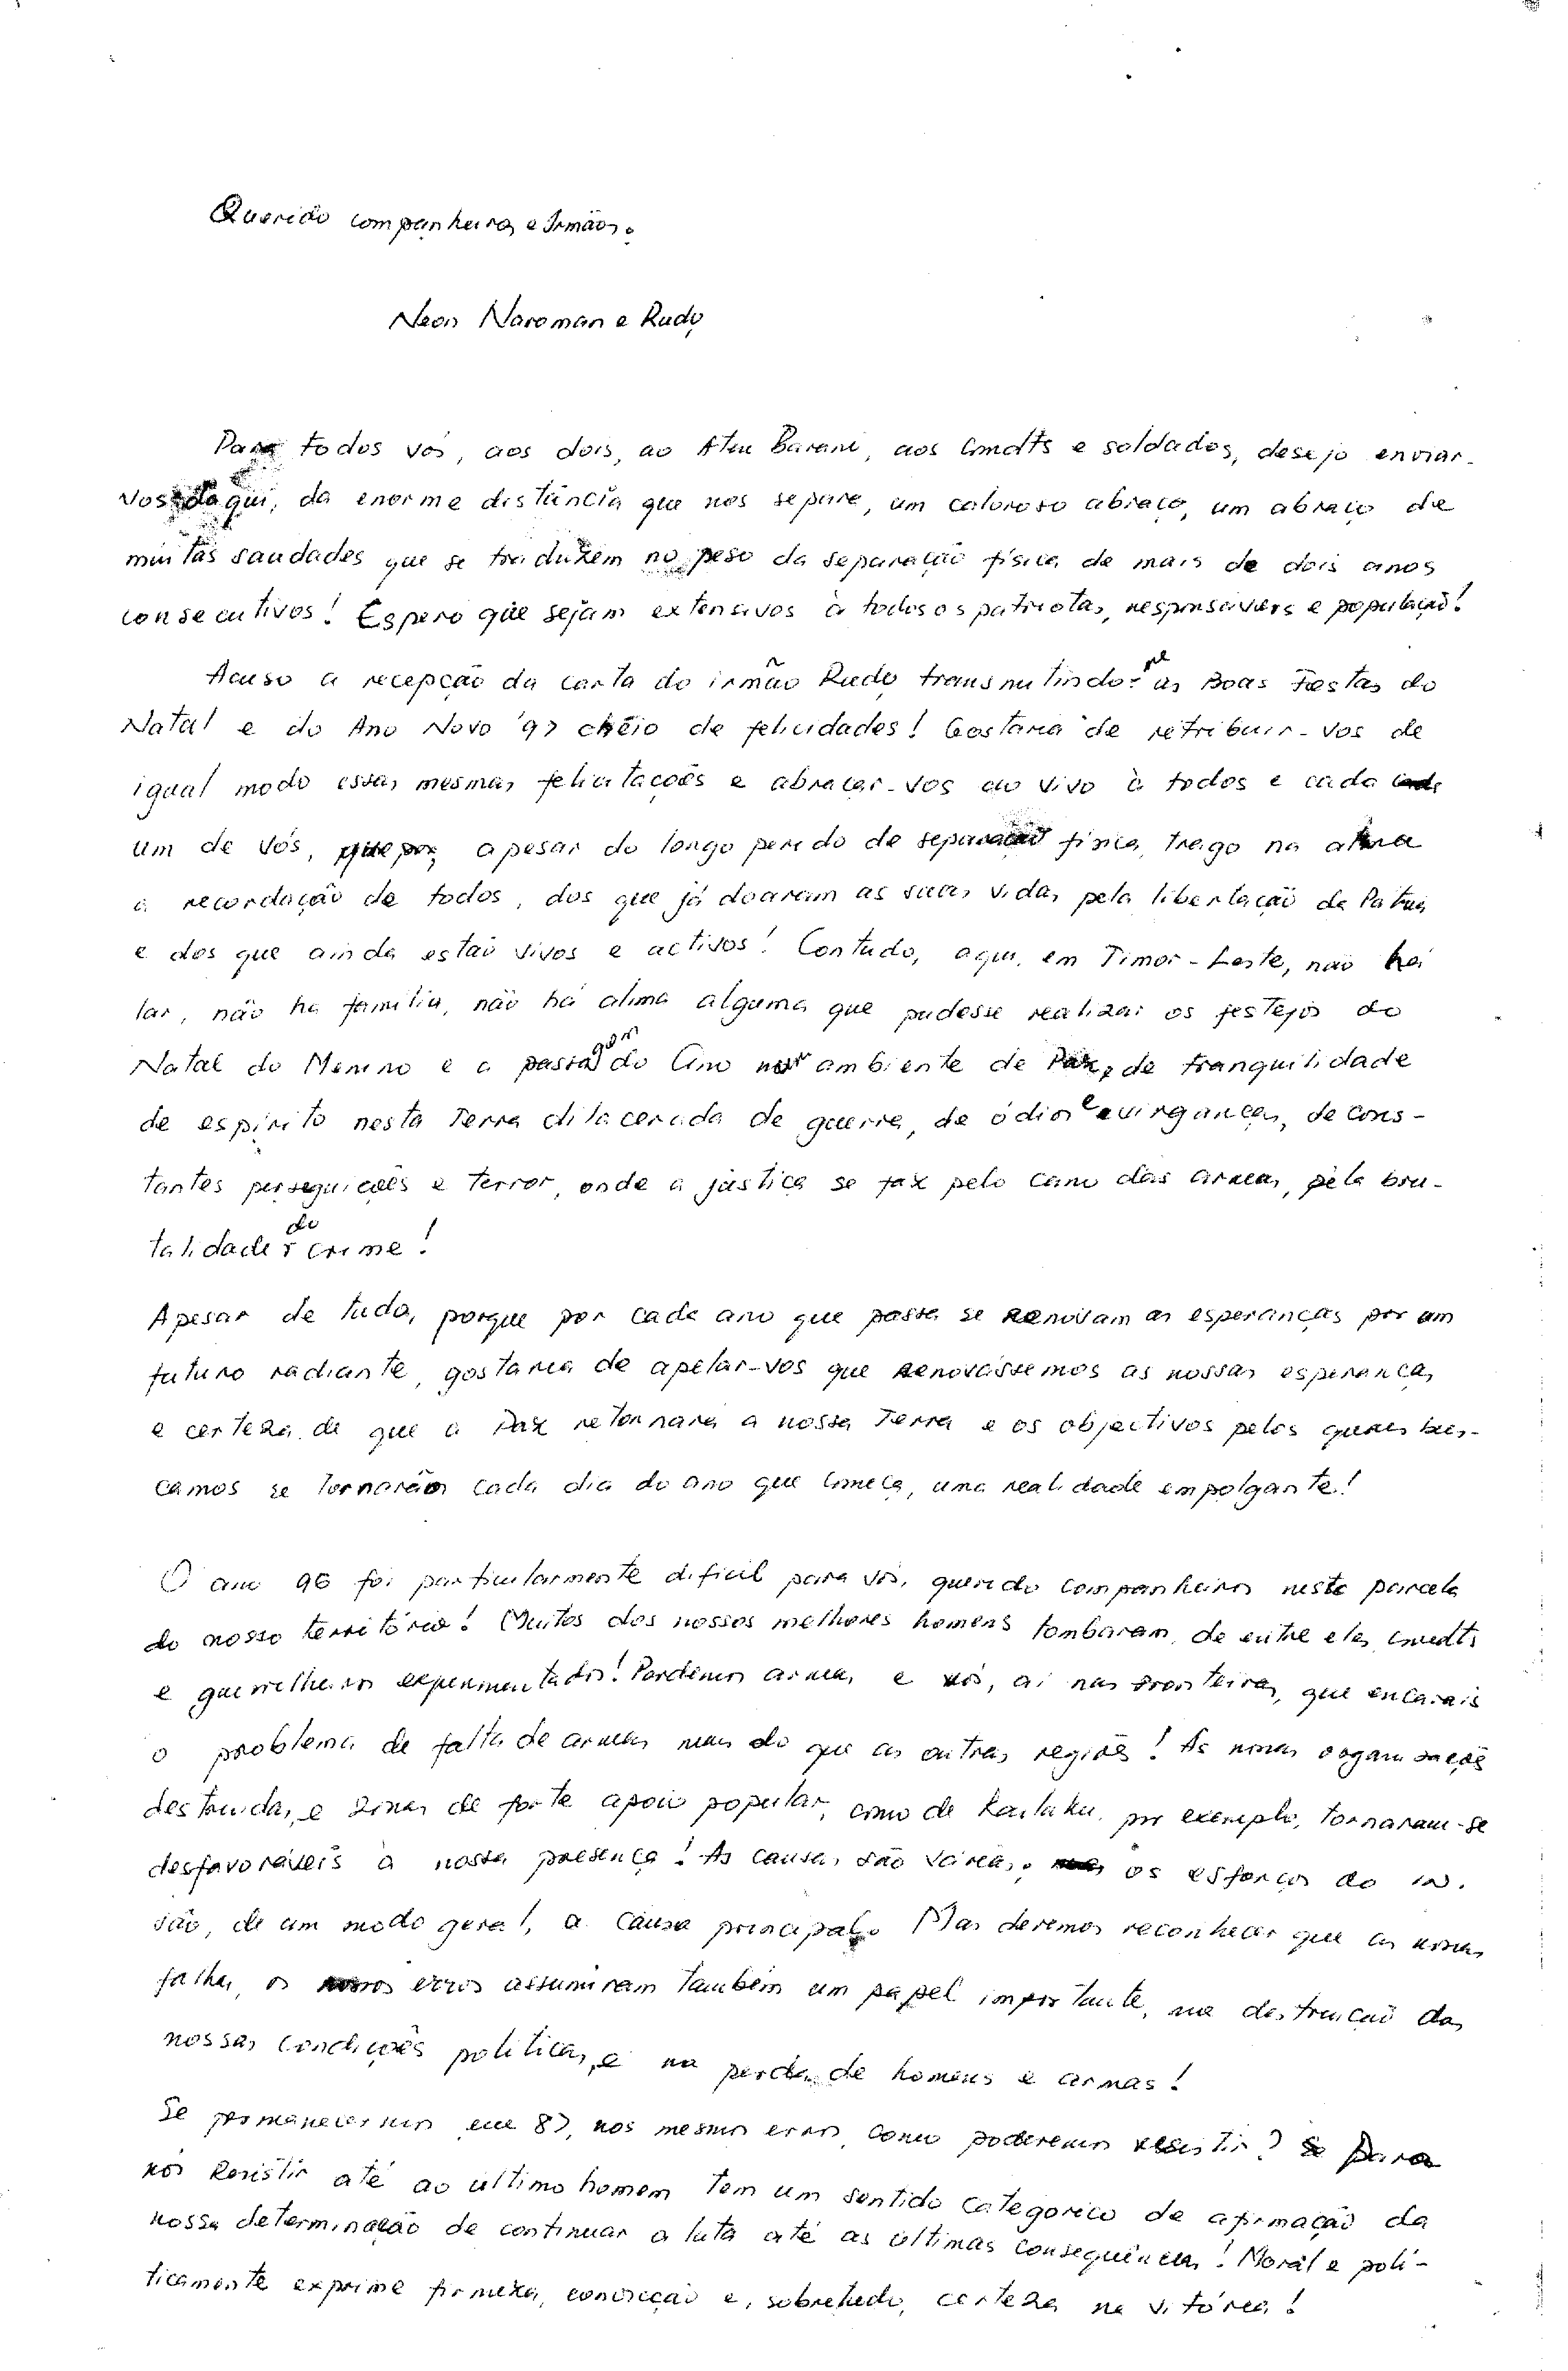 Querido companheiros e Irmãos.
Neon Naroman e Rudy
Para todos vós, aos dois, ao Aten Barani, aos Cmdts e soldados, desejo enviar-
vos daqui, da enorme distância que nos separe, um caloroso abraço, um abraço de
muitas saudades que se traduzem no peso da separação física de mais de dois anos
consecutivos! Espero que sejam extensivos à todos os patriotas, responsáveis e população!
Acuso a recepção da carta do irmão Rudy transmitindo-me as Boas Festas do
Natal e do Ano Novo '97 cheio de felicidades! Gostaria de retribuir-vos de
igual modo essas mesmas felicitações e abraçar-vos ao vivo à todos e cada
um de vós, apesar do longo perido de separação física, trago na alma
a recordação de todos, dos que já doaram as suas vidas pela libertação da Pátria
e dos que ainda estão vivos e activos! Contudo, aqui, em Timor-Leste, não há
lar, não ha familia, não há alma alguma que pudesse realizar os festejos do
Natal do Menino e a passagem do Ano num ambiente de Paz, de tranquilidade
de espírito nesta Terra dilacerada de guerra, de ódios e vinganças, de cons-
tantes perseguições e terror, onde a justiça se faz pelo cano das armas, pela bru-
talidade do crime!
Apesar de tudo, porque por cada ano que passa se renovam as esperanças por um
futuro radiante, gostaria de apelar-vos que renovássemos as nossas esperanças
e certeza de que a Paz retornará a nossa Terra e os objectivos pelos quais bus-
camos se tornarão cada dia do ano que começa, uma realidade empolgante!
O ano 96 foi particularmente dificil para vós, querido companheiros neste parcela
do nosso território! Muitos dos nossos melhores homens tombaram, de entre eles cmdts
e guerrilheiros experimentados! Perdemos armas, e vós, aí nas fronteiras, que encarais
o problema de falta de armas mais do que as outras regiões! As nossas organizações
destruidas, e zonas de forte apoio popular, como de Kailaku, por exemplo, tornaram-se
desfavoráveis à nossa presença! As causas são várias, os esforços do in.
são, de um modo geral, a causa principal. Mas devemos reconhecer que as nossas
falhas, os nossos erros assumiram também um papel importante, na destruição das
nossas condições politicas, e na perda de homens e armas!
Se permanecermos em 87, nos mesmos erros, como poderemos resistir? Se para
nós Resistir até ao último homem tem um sentido categorico de afirmação da
nossa determinação de continuar a luta até as últimas consequências! Moral e poli-
ticamente exprime firmeza, convicção e, sobretudo, certeza na vitória!